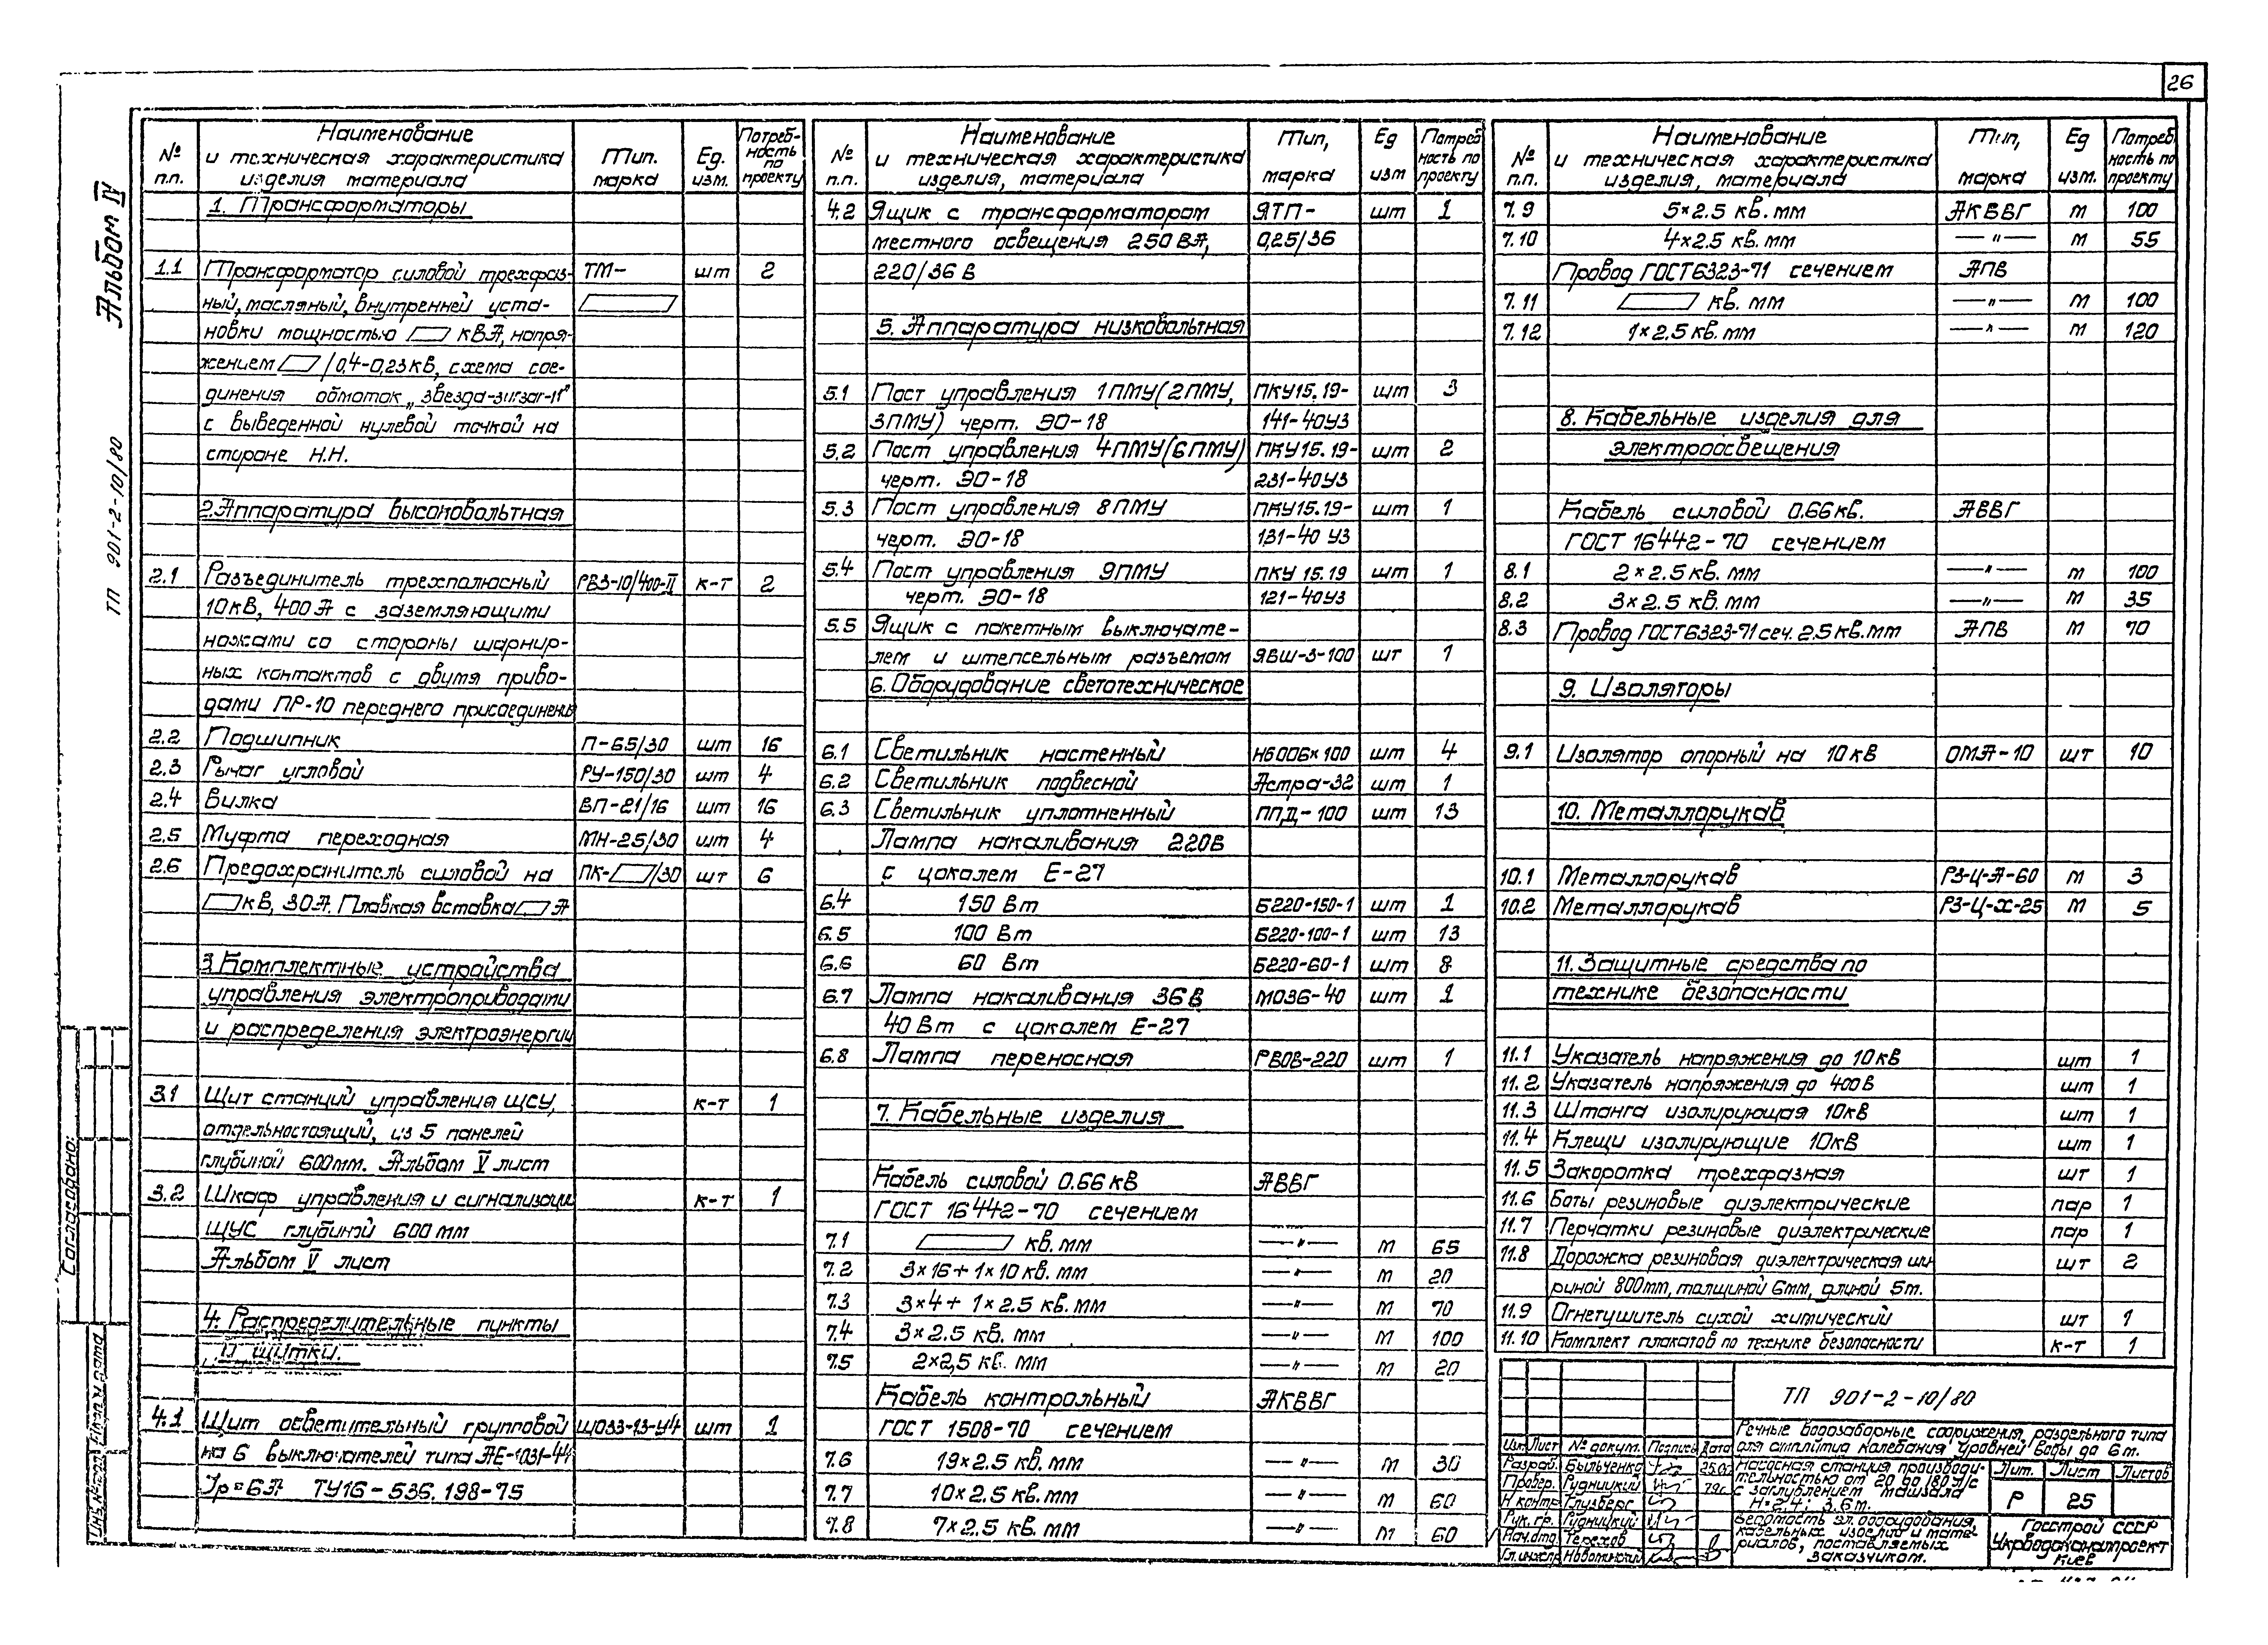 26
Альбом IV
ТП 901-2-10/80
Согласовано:
№ п.п. Наименование и техническая характеристика изделия материала Тип. марка Ед. изм. Потреб-ность по проекту
1. Трансформаторы
1.1 Трансформатор силовой трехфаз- ТМ- шт 2
ный, масляный, внутренней уста-
новки мощностью кВА, напря-
жением /0,4-0,23кВ, схема сое-
динения обмоток „звезда-зигзаг-11"
с выведенной нулевой точкой на
стороне Н.Н.
2. Аппаратура высоковольтная
2.1 Разъединитель трехполюсный РВЗ-10/400-II к-т 2
10кВ, 400А с заземляющими
ножами со стороны шарнир-
ных контактов с двумя приво-
дами ПР-10 переднего присоединения
2.2 Подшипник П-65/30 шт 16
2.3 Рычаг угловой РУ-150/30 шт 4
2.4 Вилка ВП-21/16 шт 16
2.5 Муфта переходная МН-25/30 шт 4
2.6 Предохранитель силовой на ПК- /30 шт 6
кВ, 30А. Плавкая вставка А
3. Комплектные устройства
управления электроприводами
и распределения электроэнергии
3.1 Щит станций управления ЩСУ, к-т 1
отдельностоящий, из 5 панелей
глубиной 600мм. Альбом V лист
3.2 Шкаф управления и сигнализации к-т 1
ШУС глубиной 600 мм
Альбом V лист
4. Распределительные пункты
и щитки.
4.1 Щит осветительный групповой ЩО33-13-У4 шт 1
на 6 выключателей типа АЕ-1031-44
Jр=6А ТУ16-536.198-75
№ п.п. Наименование и техническая характеристика изделия, материала Тип, марка Ед изм Потреб ность по проекту
4.2 Ящик с трансформатором ЯТП- шт 1
местного освещения 250 ВА, 0,25/36
220/36 В
5. Аппаратура низковольтная
5.1 Пост управления 1ПМУ(2ПМУ, ПКУ15.19- шт 3
3ПМУ) черт. ЭО-18 141-40У3
5.2 Пост управления 4ПМУ(6ПМУ) ПКУ15.19- шт 2
черт. ЭО-18 231-40У3
5.3 Пост управления 8ПМУ ПКУ15.19- шт 1
черт. ЭО-18 131-40 У3
5.4 Пост управления 9ПМУ ПКУ 15.19 шт 1
черт. ЭО-18 121-40У3
5.5 Ящик с пакетным выключате-
лем и штепсельным разъемом ЯВШ-3-100 шт 1
6. Оборудование светотехническое
6.1 Светильник настенный НБ006×100 шт 4
6.2 Светильник подвесной Астра-32 шт 1
6.3 Светильник уплотненный ППД-100 шт 13
Лампа накаливания 220В
с цоколем Е-27
6.4 150 Вт Б220-150-1 шт 1
6.5 100 Вт Б220-100-1 шт 13
6.6 60 Вт Б220-60-1 шт 8
6.7 Лампа накаливания 36В МО36-40 шт 1
40Вт с цоколем Е-27
6.8 Лампа переносная РВОВ-220 шт 1
7. Кабельные изделия
Кабель силовой 0.66 кВ АВВГ
ГОСТ 16442-70 сечением
7.1 кв. мм —"— м 65
7.2 3×16+1×10 кв. мм —"— м 20
7.3 3×4+1×2.5 кв. мм —"— м 70
7.4 3×2.5 кв. мм —"— м 100
7.5 2×2,5 кв. мм —"— м 20
Кабель контрольный АКВВГ
ГОСТ 1508-70 сечением
7.6 19×2.5 кв. мм —"— м 30
7.7 10×2.5 кв.мм —"— м 60
7.8 7×2.5 кв. мм —"— м 60
№ п.п. Наименование и техническая характеристика изделия, материала Тип, марка Ед изм. Потреб ность по проекту
7.9 5×2.5 кв. мм АКВВГ м 100
7.10 4×2.5 кв. мм —"— м 55
Провод ГОСТ6323-71 сечением АПВ
7.11 кв. мм —"— м 100
7.12 1×2.5 кв. мм —"— м 120
8. Кабельные изделия для
электроосвещения
Кабель силовой 0.66 кв. АВВГ
ГОСТ 16442-70 сечением
8.1 2×2.5 кв. мм —"— м 100
8.2 3×2.5 кв. мм —"— м 35
8.3 Провод ГОСТ6323-71 сеч. 2.5 кв.мм АПВ м 70
9. Изоляторы
9.1 Изолятор опорный на 10 кВ ОМА-10 шт 10
10. Металлорукав
10.1 Металлорукав РЗ-Ц-А-60 м 3
10.2 Металлорукав РЗ-Ц-Х-25 м 5
11. Защитные средства по
технике безопасности
11.1 Указатель напряжения до 10кВ шт 1
11.2 Указатель напряжения до 400В шт 1
11.3 Штанга изолирующая 10кВ шт 1
11.4 Клещи изолирующие 10кВ шт 1
11.5 Закоротка трехфазная шт 1
11.6 Боты резиновые диэлектрические пар 1
11.7 Перчатки резиновые диэлектрические пар 1
11.8 Дорожка резиновая диэлектрическая ши- шт 2
риной 800мм, толщиной 6мм, длиной 5м.
11.9 Огнетушитель сухой химический шт 1
11.10 Комплект плакатов по технике безопасности к-т 1
ТП 901-2-10/80
Речные водозаборные сооружения раздельного типа
для амплитуд колебания уровней воды до 6 м.
Изм Лист № докум. Подпись Дата
Разраб. Быльченко
Провер. Рудницкий
Н контр Глузберг
Рук. гр. Рудницкий
Нач.отд. Терехов
Гл.инж.пр.
Насосная станция производи-
тельностью от 20 до 180 л/с
с заглублением машзала
Н=2,4; 3,6 м.
Лит. Лист Листов
Р 25
Ведомость эл. оборудования,
кабельных изделий и мате-
риалов, поставляемых
заказчиком.
Госстрой СССР
Укрводоканалпроект
Киев